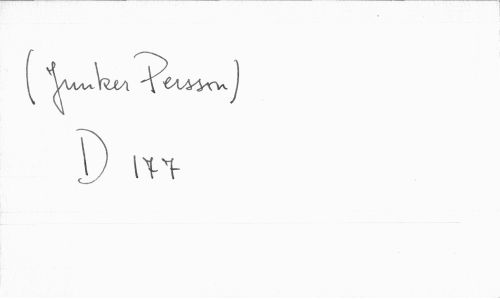 (Junker Persson)
D 177